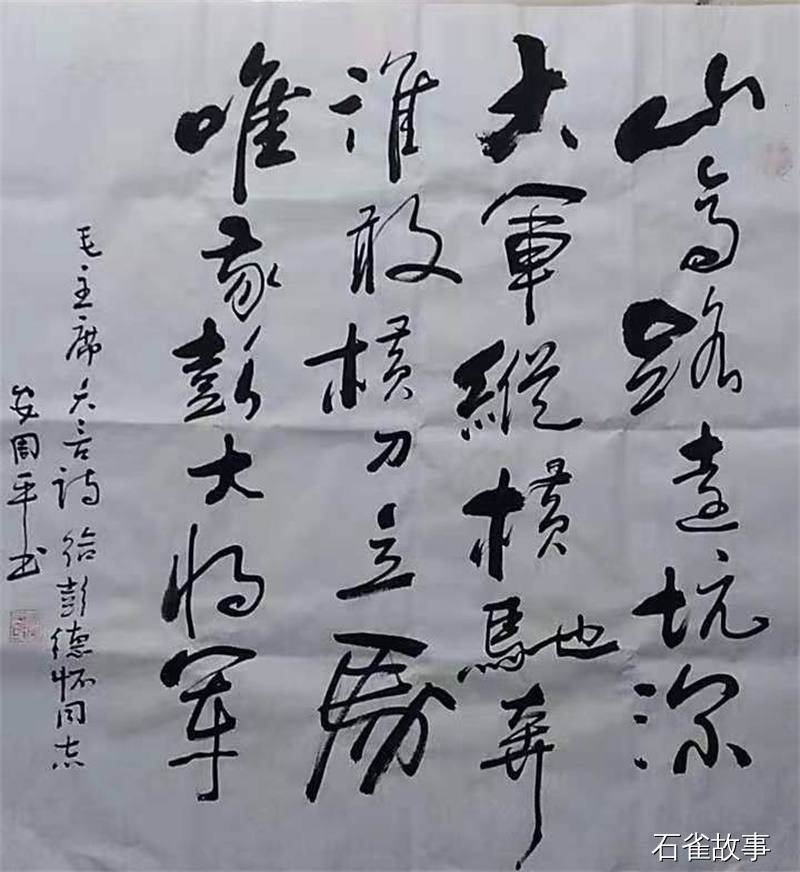 山高路遠坑深
大軍縱橫馳奔
誰敢横刀立馬
唯我彭大將军
毛主席六言詩 给彭德怀同志
安周平书
石雀故事